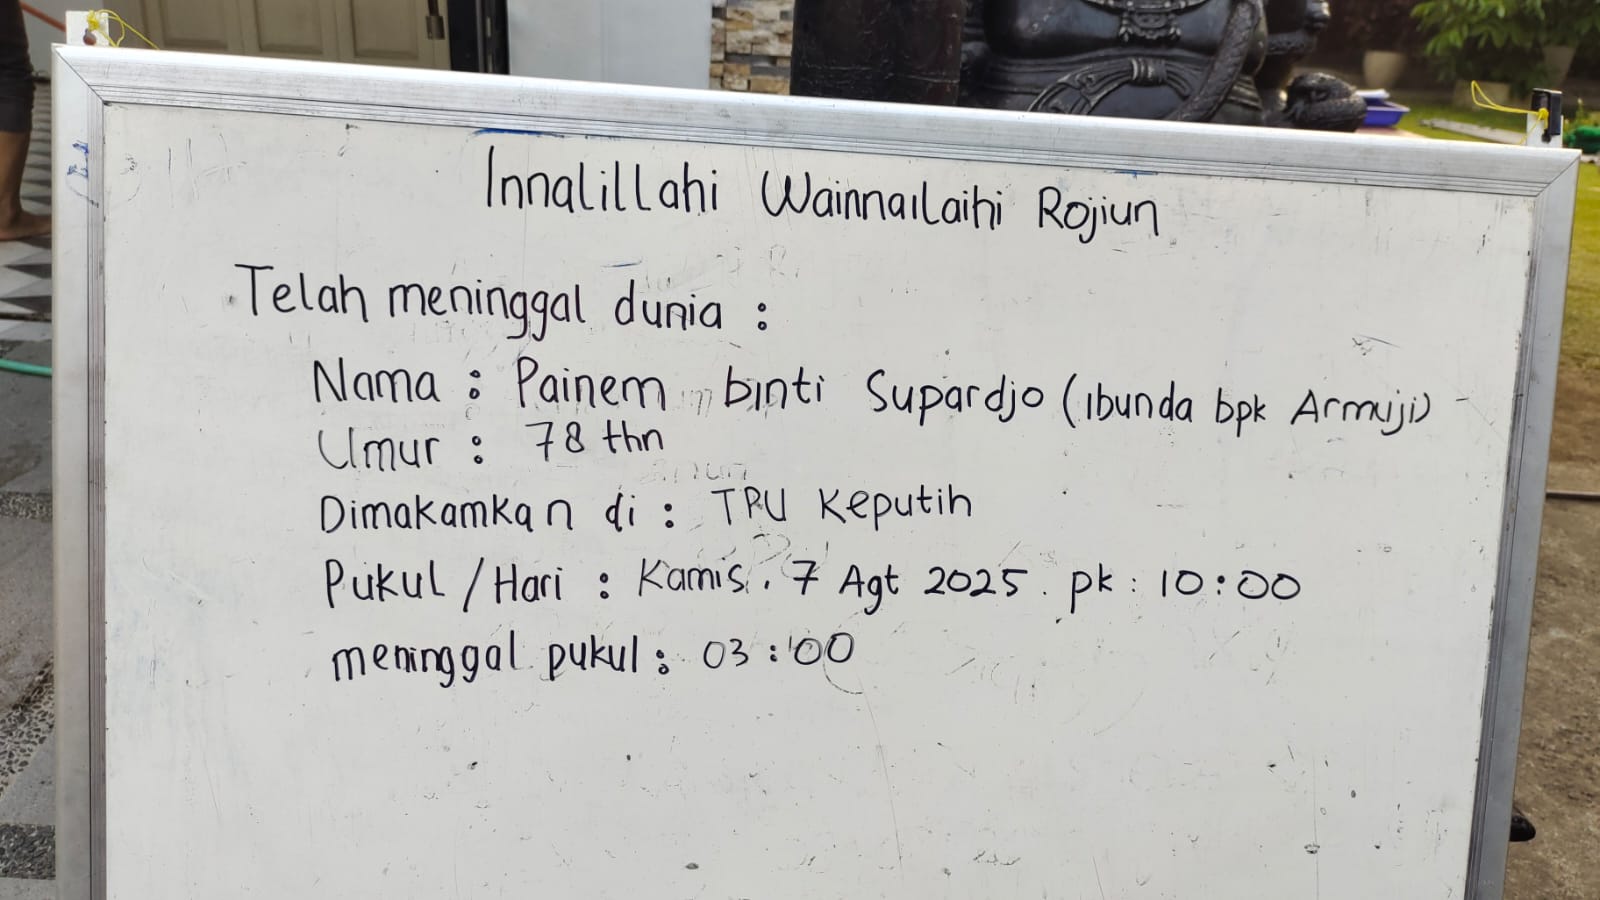 Innalillahi Wainnailaihi Rojiun
Telah meninggal dunia :
Nama : Painem binti Supardjo (ibunda bpk Armuji)
Umur : 78 thn
Dimakamkan di : TPU Keputih
Pukul / Hari : Kamis. 7 Agt 2025. pk : 10:00
meninggal pukul : 03:00